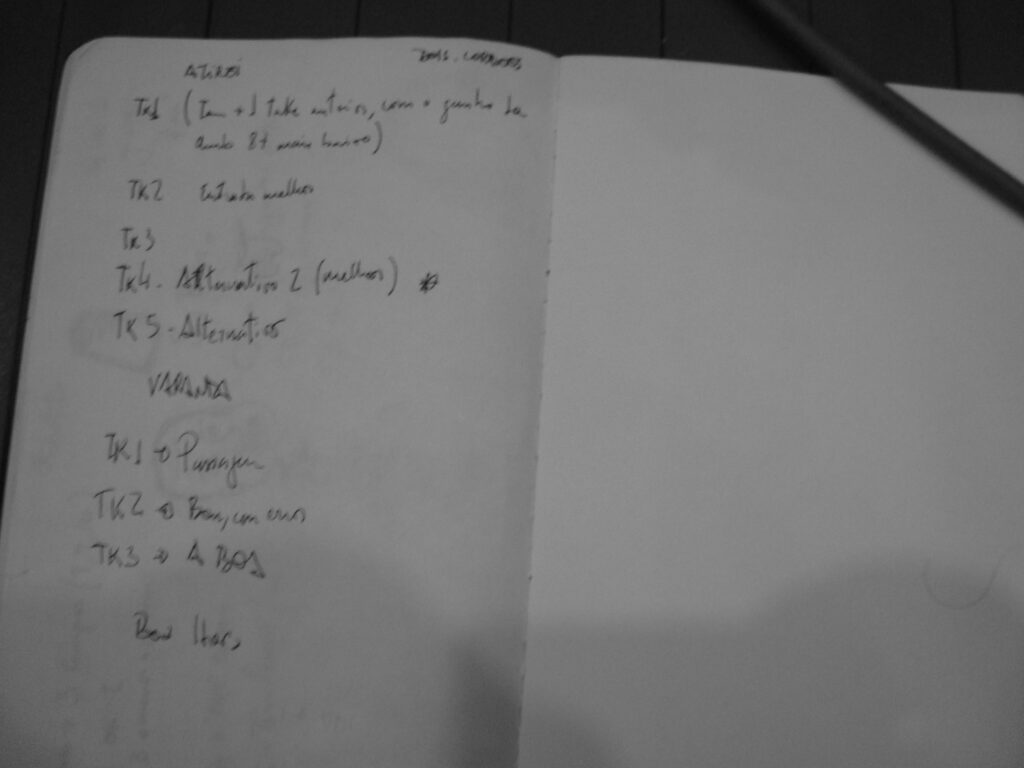 ATIREI
TK1 (Tem +1 take antes, com o ganho da
8+ mais baixo)
TK2 Entrada melhor
TK3
TK4 - Alternativo 2 (melhor) *
TK5 - Alternativo
VARANDA
TK1 → Passagem
TK2 → Bom, com erros
TK3 → A BOA